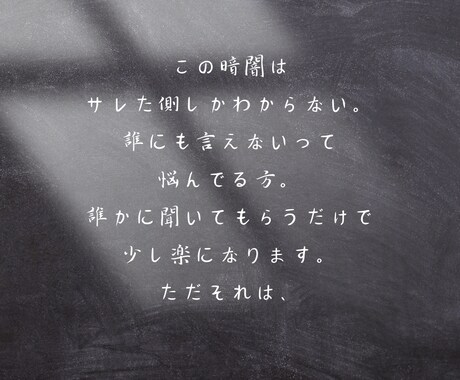 この暗闇は
サレた側しかわからない。
誰にも言えないって
悩んでる方。
誰かに聞いてもらうだけで
少し楽になります。
ただそれは、